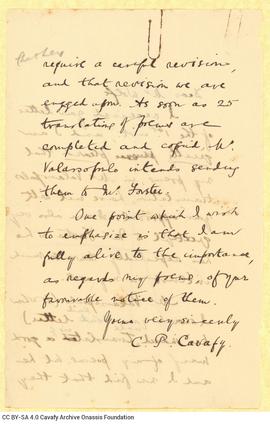 require a careful revision,
and that revision we are
engaged upon. As soon as 25
translations of poems are
completed and copied Mr.
Valassopoulo intends sending
them to Mr. Forster.
One point which I wish
to emphasize is that I am
fully alive to the importance,
as regards my poems, of your
favourable notice of them.
Yours very sincerely
C. P. Cavafy.
CC BY-SA 4.0 Cavafy Archive Onassis Foundation